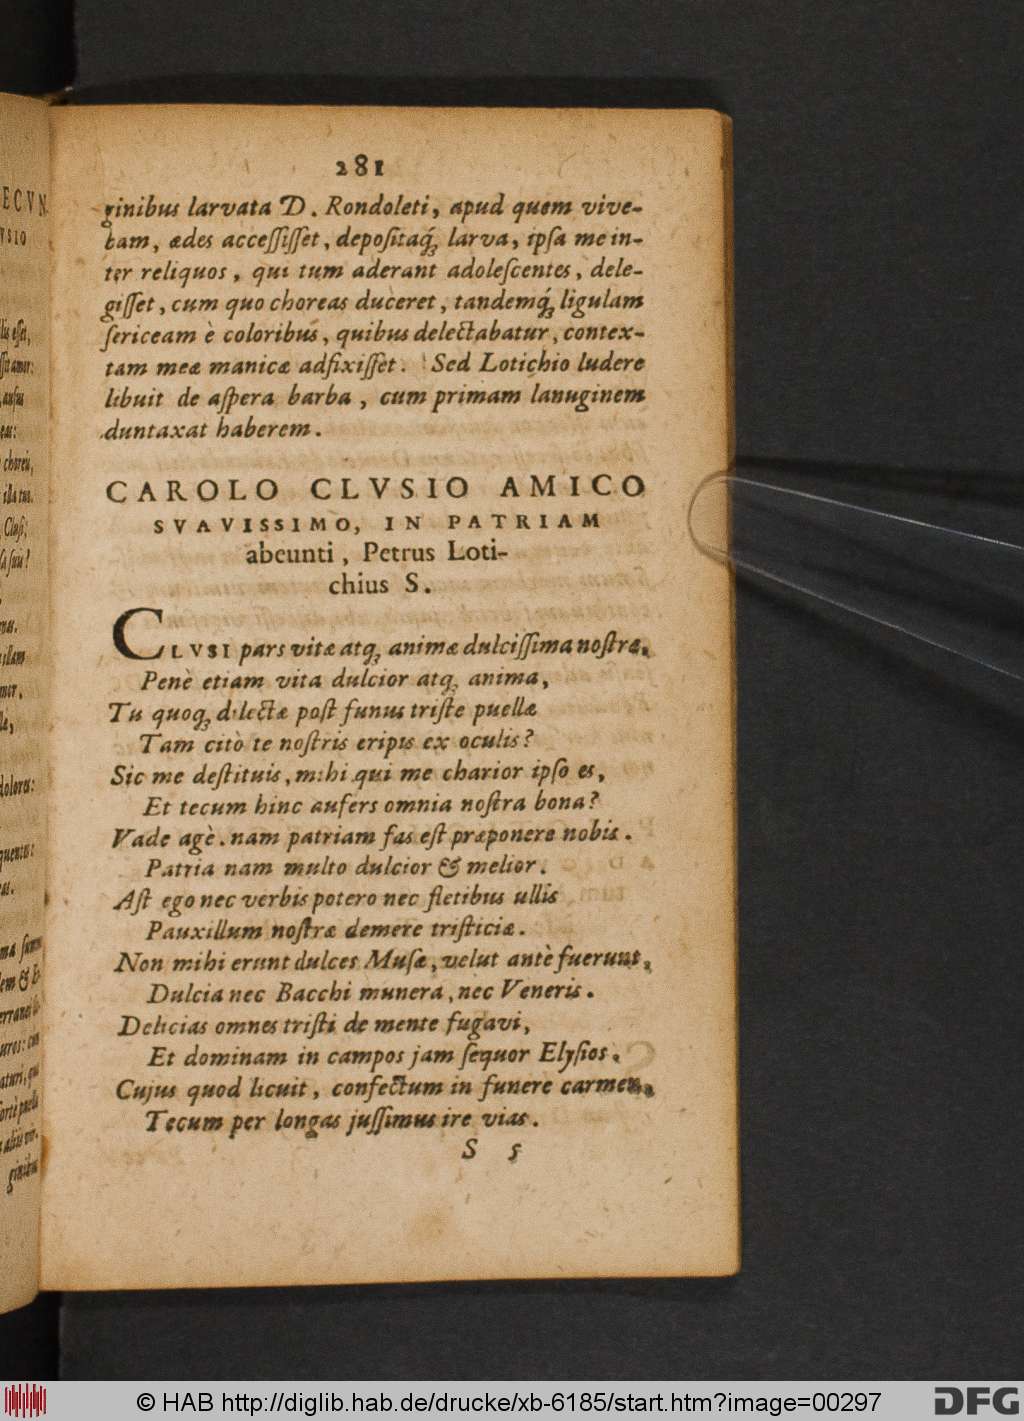 281
ginibus larvata D. Rondoleti, apud quem vive-
bam, ædes accessisset, depositaq́ꝫ larva, ipsa me in-
ter reliquos, qui tum aderant adolescentes, dele-
gisset, cum quo choreas duceret, tandemq́ꝫ ligulam
sericeam è coloribus, quibus delectabatur, contex-
tam meæ manicæ adfixisset. Sed Lotichio ludere
libuit de aspera barba, cum primam lanuginem
duntaxat haberem.
CAROLO CLVSIO AMICO
SVAVISSIMO, IN PATRIAM
abeunti, Petrus Loti-
chius S.
CLVSI pars vitæ atqꝫ animæ dulcissima nostræ,
Penè etiam vita dulcior atqꝫ anima,
Tu quoqꝫ dilectæ post funus triste puellæ
Tam citò te nostris eripis ex oculis?
Sic me destituis, mihi qui me charior ipso es,
Et tecum hinc aufers omnia nostra bona?
Vade agè. nam patriam fas est præponere nobis.
Patria nam multo dulcior & melior.
Ast ego nec verbis potero nec fletibus ullis
Pauxillum nostræ demere tristiciæ.
Non mihi erunt dulces Musæ, velut antè fuerunt,
Dulcia nec Bacchi munera, nec Veneris.
Delicias omnes tristi de mente fugavi,
Et dominam in campos jam sequor Elysios.
Cujus quod licuit, confectum in funere carmen,
Tecum per longas jussimus ire vias.
S 5
© HAB http://diglib.hab.de/drucke/xb-6185/start.htm?image=00297
DFG